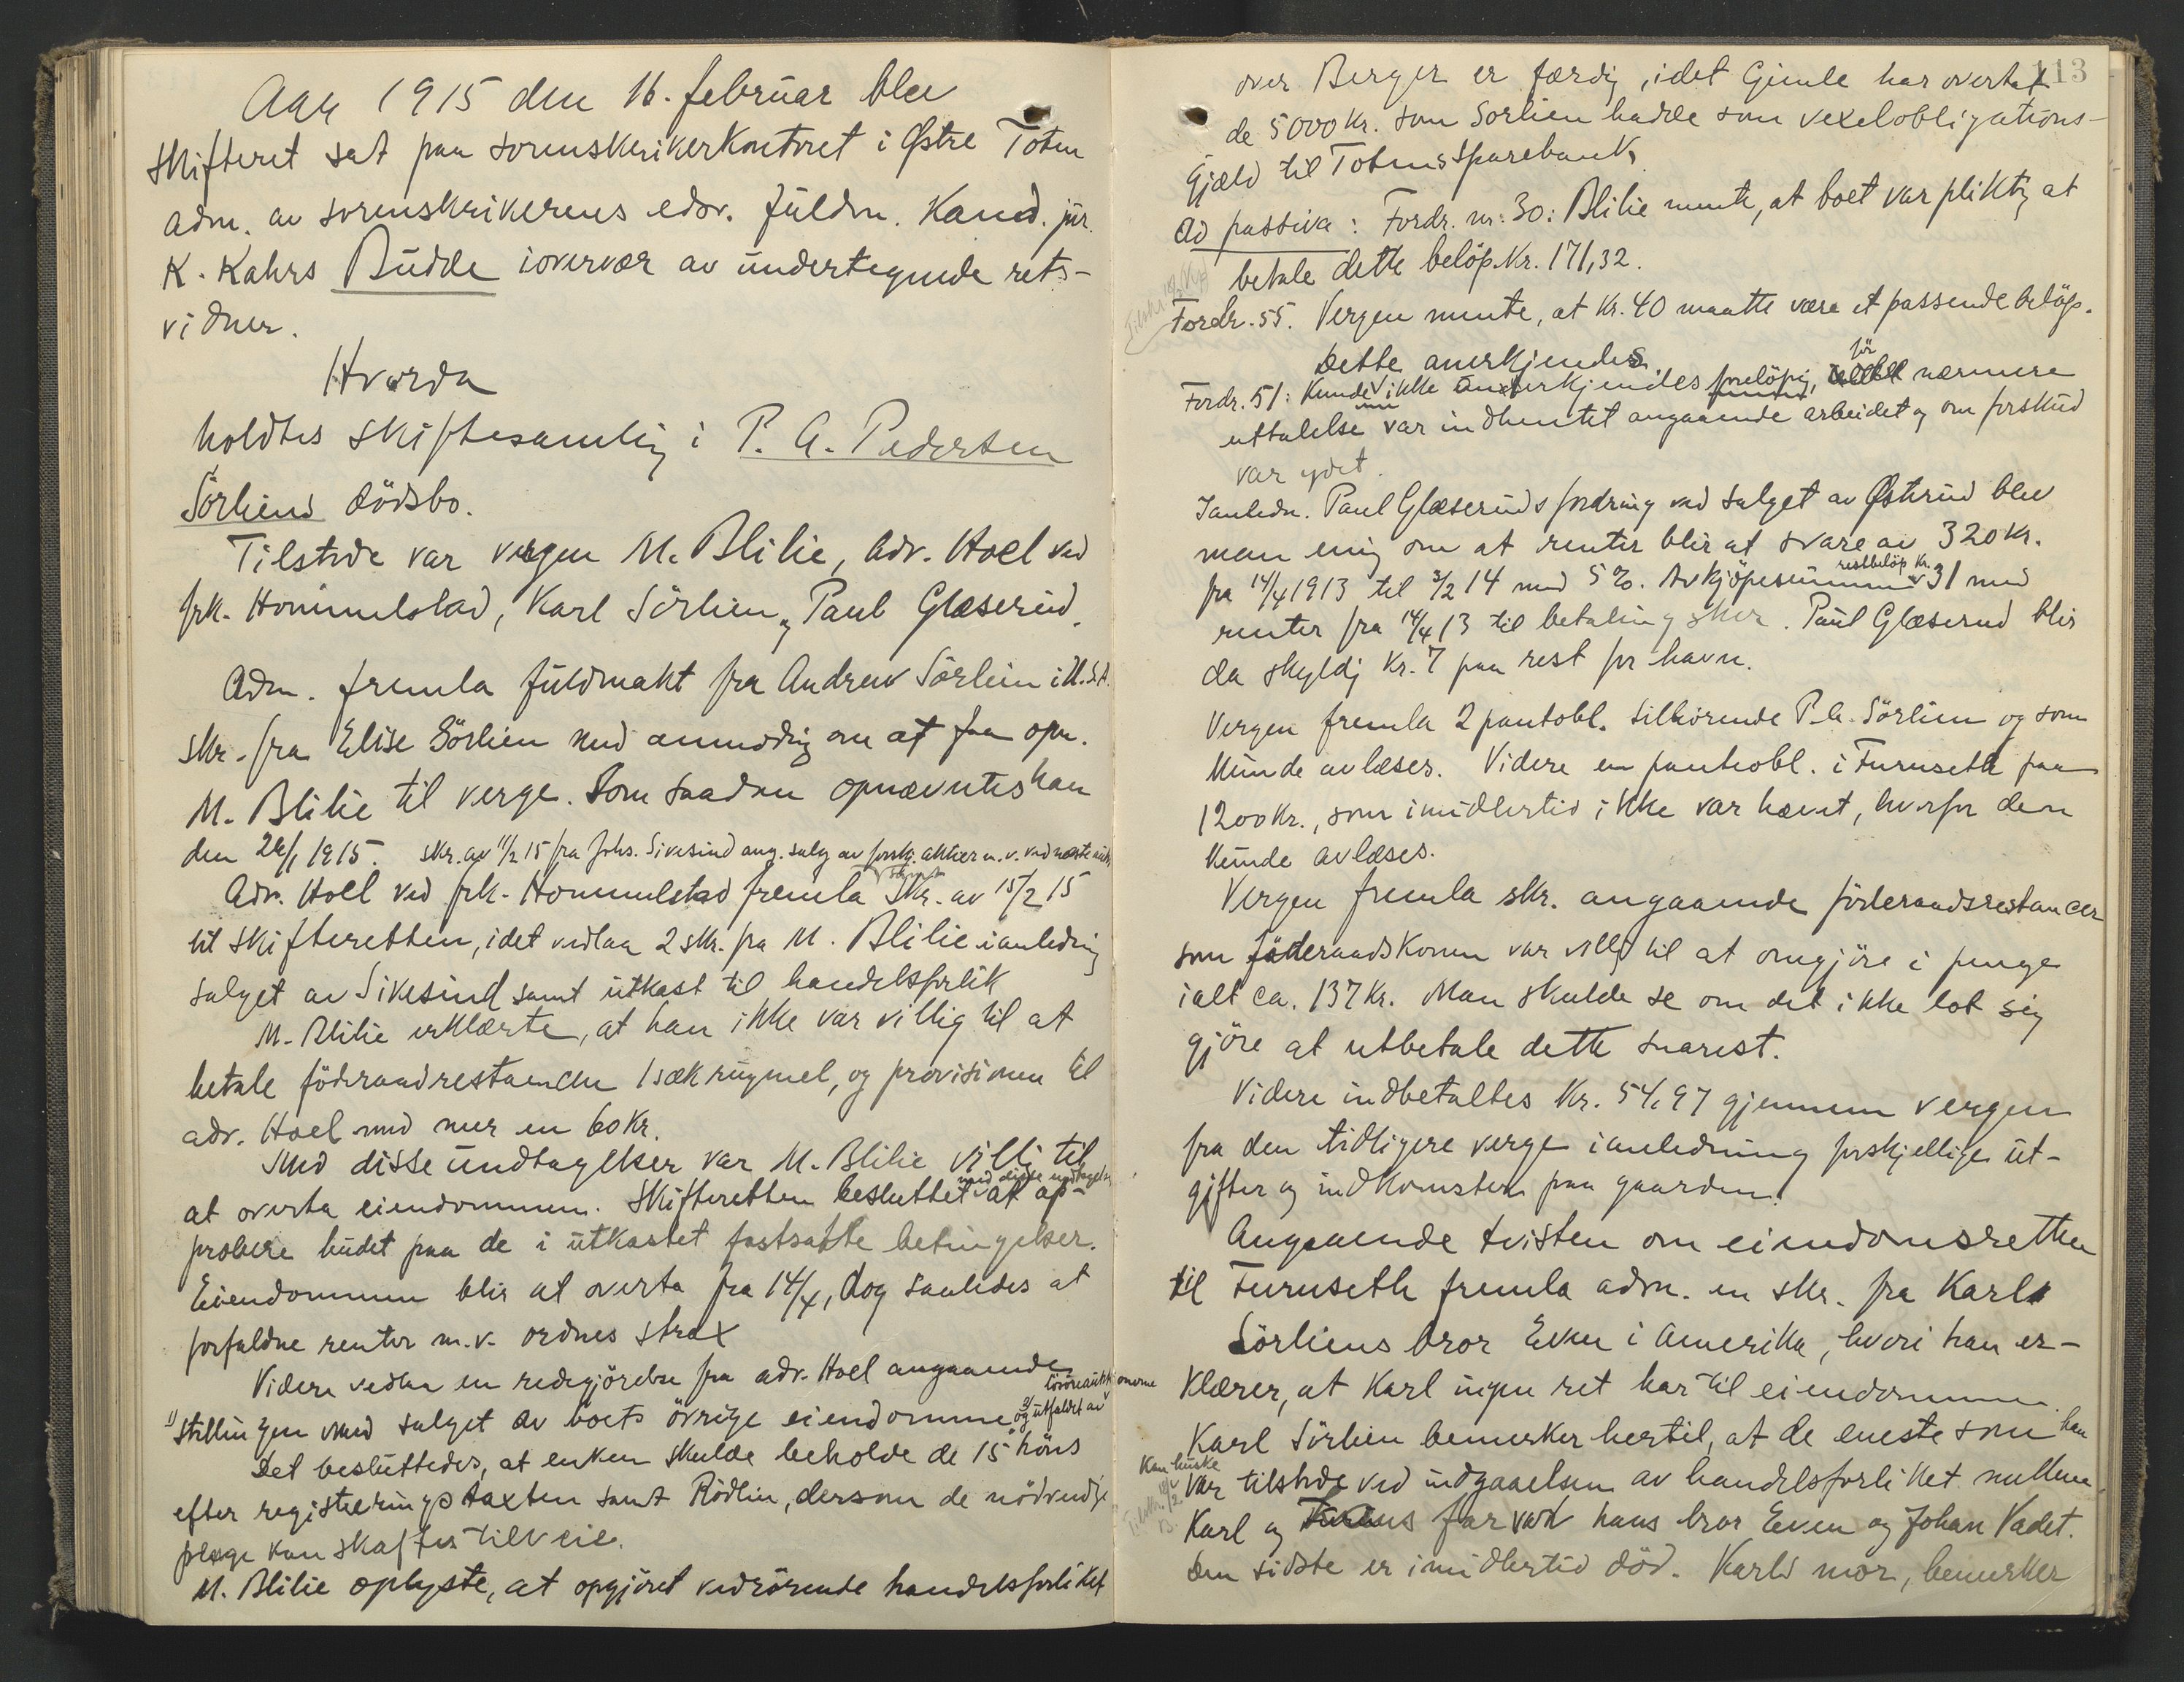 Aar 1915 den 16. februar blev
skifteret sat paa sorenskriverkontoret i Østre Toten
adm. av sorenskriverens edsv. fuldm. Kand. jur.
K. Kahrs Budde i overvær av undertegnede rets-
vidner.
Hvorda
holdtes skiftesamling i P. A. Pedersen
Sörliens dödsbo.
Tilstede var vergen M. Blilie, adv. Hoel ved
frk. Hommelstad, Karl Sörlien og Paul Glæserud.
Adm. fremla fuldmakt fra Andrew Sörlien i U.S.A.
skr. fra Elise Sörlien med anmodning om at faa opn.
M. Blilie til verge. Som saadan opnævntes han
den 26/1 1915. skr. av 11/2 15 fra Johs. Sivesind ang. salg av forskj. aktier m. v. ved næste
Adv. Hoel ved frk. Hommelstad fremla skr. av 15/2 15
til skifteretten, idet vedlaa 2 skr. fra M. Blilie i anledning
salget av Sivesind samt utkast til handelsforlik
M. Blilie erklærte, at han ikke var villig til at
betale föderaadrestancen 1 sæk rugmel, og provisionen til
adv. Hoel med mer en 60 Kr.
Med disse undtagelser var M. Blilie villig til
at overta eiendommen. Skifteretten besluttet med disse undtagelser at ap-
probere budet paa de i utkastet fastsatte betingelser.
Eiendommen blir at overta fra 14/4, dog saaledes at
forfaldne renter m.v. ordnes strax
Videre vedlaa en redegjörelse fra adv. Hoel angaaende
1) stillingen med salget av boets övrige eiendomme 2) og utfaldet av lösöreauktionerne
Det besluttedes, at enken skulde beholde de 15 höns
efter registreringstaxten samt Rödlin, dersom de nödvendige
penge kan skaffes tilveie.
M. Blilie oplyste, at opgjöret vedrörende handelsforliket
113
over Berger er færdig, idet Gimle har overtat
de 5000 Kr. som Sörlien hadde som vexelobligations-
gjæld til Totens Sparebank.
Ad passiva: Fordr. nr. 30: Blilie mente, at boet var pliktig at
betale dette belöp Kr. 171,32.
Fordr. 55. Vergen mente, at Kr. 40 maatte være et passende belöp.
Dette anerkjendes.
Fordr. 51: Kunde ikke anerkjendes forelöpig, för nærmere
uttalelse var indhentet angaaende arbeidet og om forskud
var ydet.
I anledn. Paul Glæseruds fordring ved salget av Østerud blev
man enig om at renter blir at svare av 320 Kr.
fra 14/4 1913 til 3/2 14 med 5 %. Av kjöpesummen restbelöp Kr. 31 med
renter fra 14/4 13 til betaling sker. Paul Glæserud blir
da skyldig Kr. 7 paa rest for havn.
Vergen fremla 2 pantobl. tilhörende P. A. Sörlien og som
kunde avlæses. Videre en panteobl. i Furuseth paa
1200 Kr., som imidlertid ikke var hævet, hvorfor den
kunde avlæses.
Vergen fremla skr. angaaende föderaadsrestancer
som föderaadskonen var villig til at omgjöre i penge
ialt ca. 137 Kr. Man skulde se om det ikke lot sig
gjöre at utbetale dette snarest.
Videre indbetaltes Kr. 54,97 gjennem vergen
fra den tidligere verge i anledning forskjellige ut-
gifter og indkomster paa gaarden.
Angaaende tvisten om eiendomsretten
til Furuseth fremla adm. en skr. fra Karl
Sörliens bror Even i Amerika, hvori han er-
klærer, at Karl ingen ret har til eiendommen.
Karl Sörlien bemerker hertil, at de eneste som han
kan huske var tilstede ved indgaaelsen av handelsforliket mellem
Karl og hans far var hans bror Even og Johan Vadet.
Den sidste er imidlertid död. Karls mor, bemerker